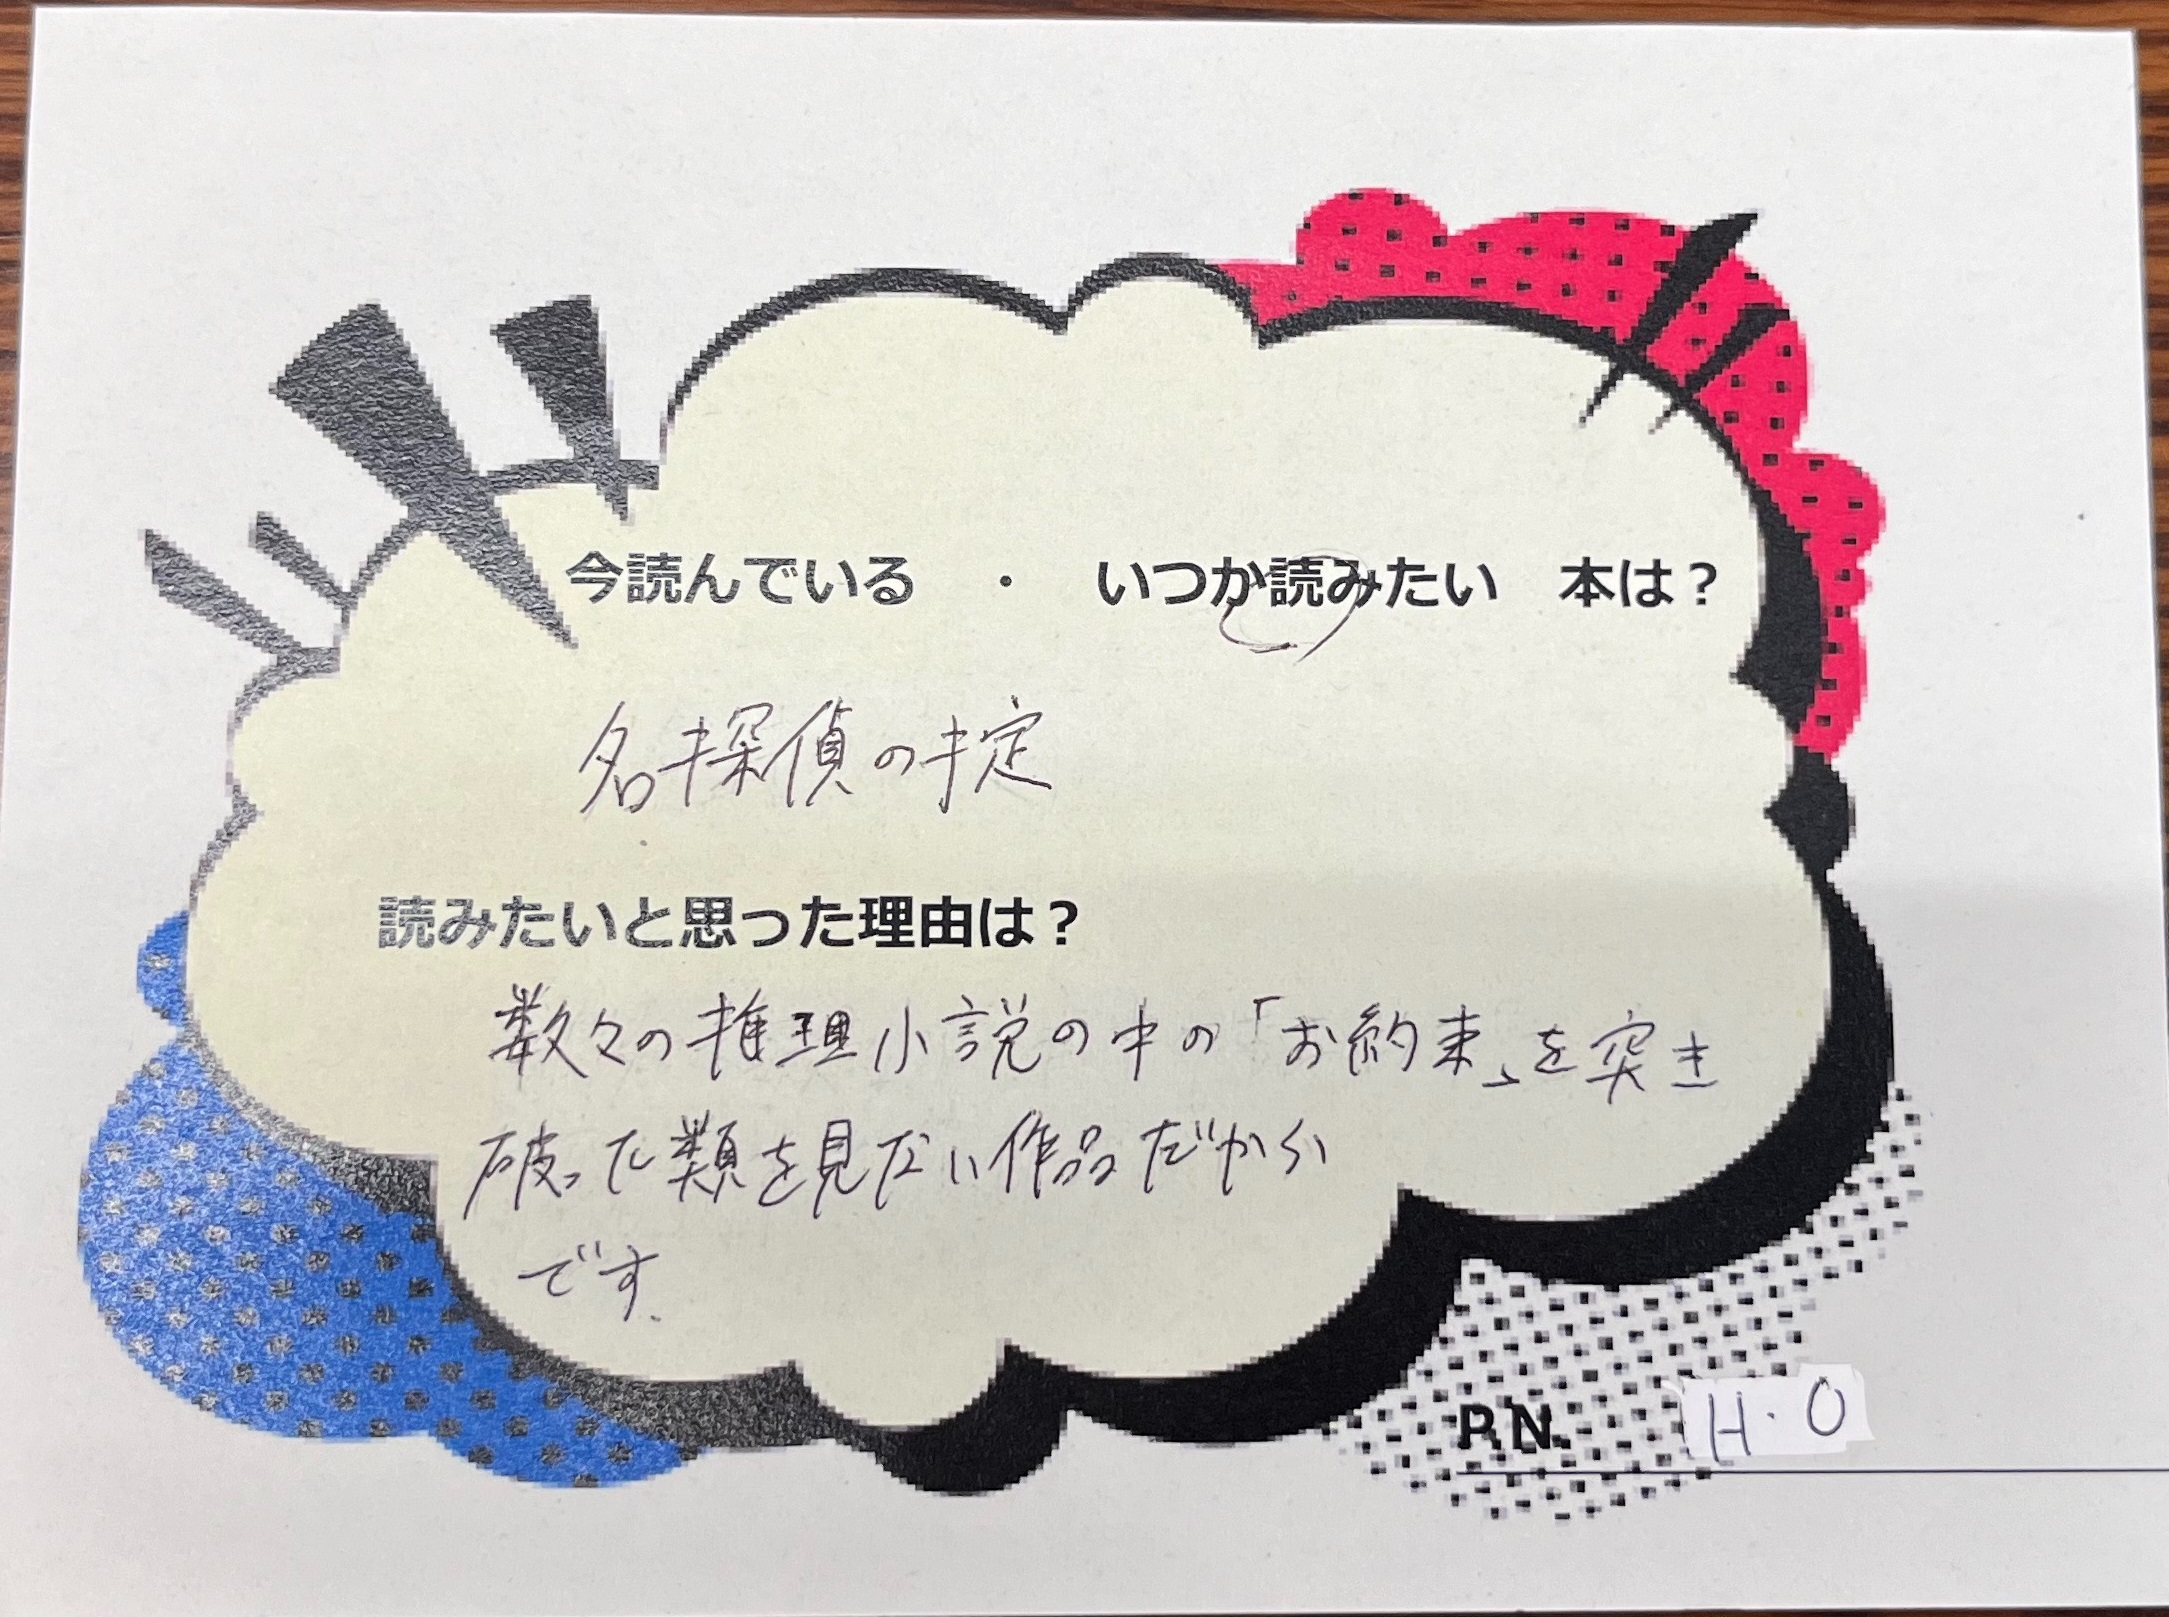 今読んでいる ・ いつか読みたい 本は？
名探偵の掟
読みたいと思った理由は？
数々の推理小説の中の「お約束」を突き
破った類を見ない作品だから
です.
P.N. H.O